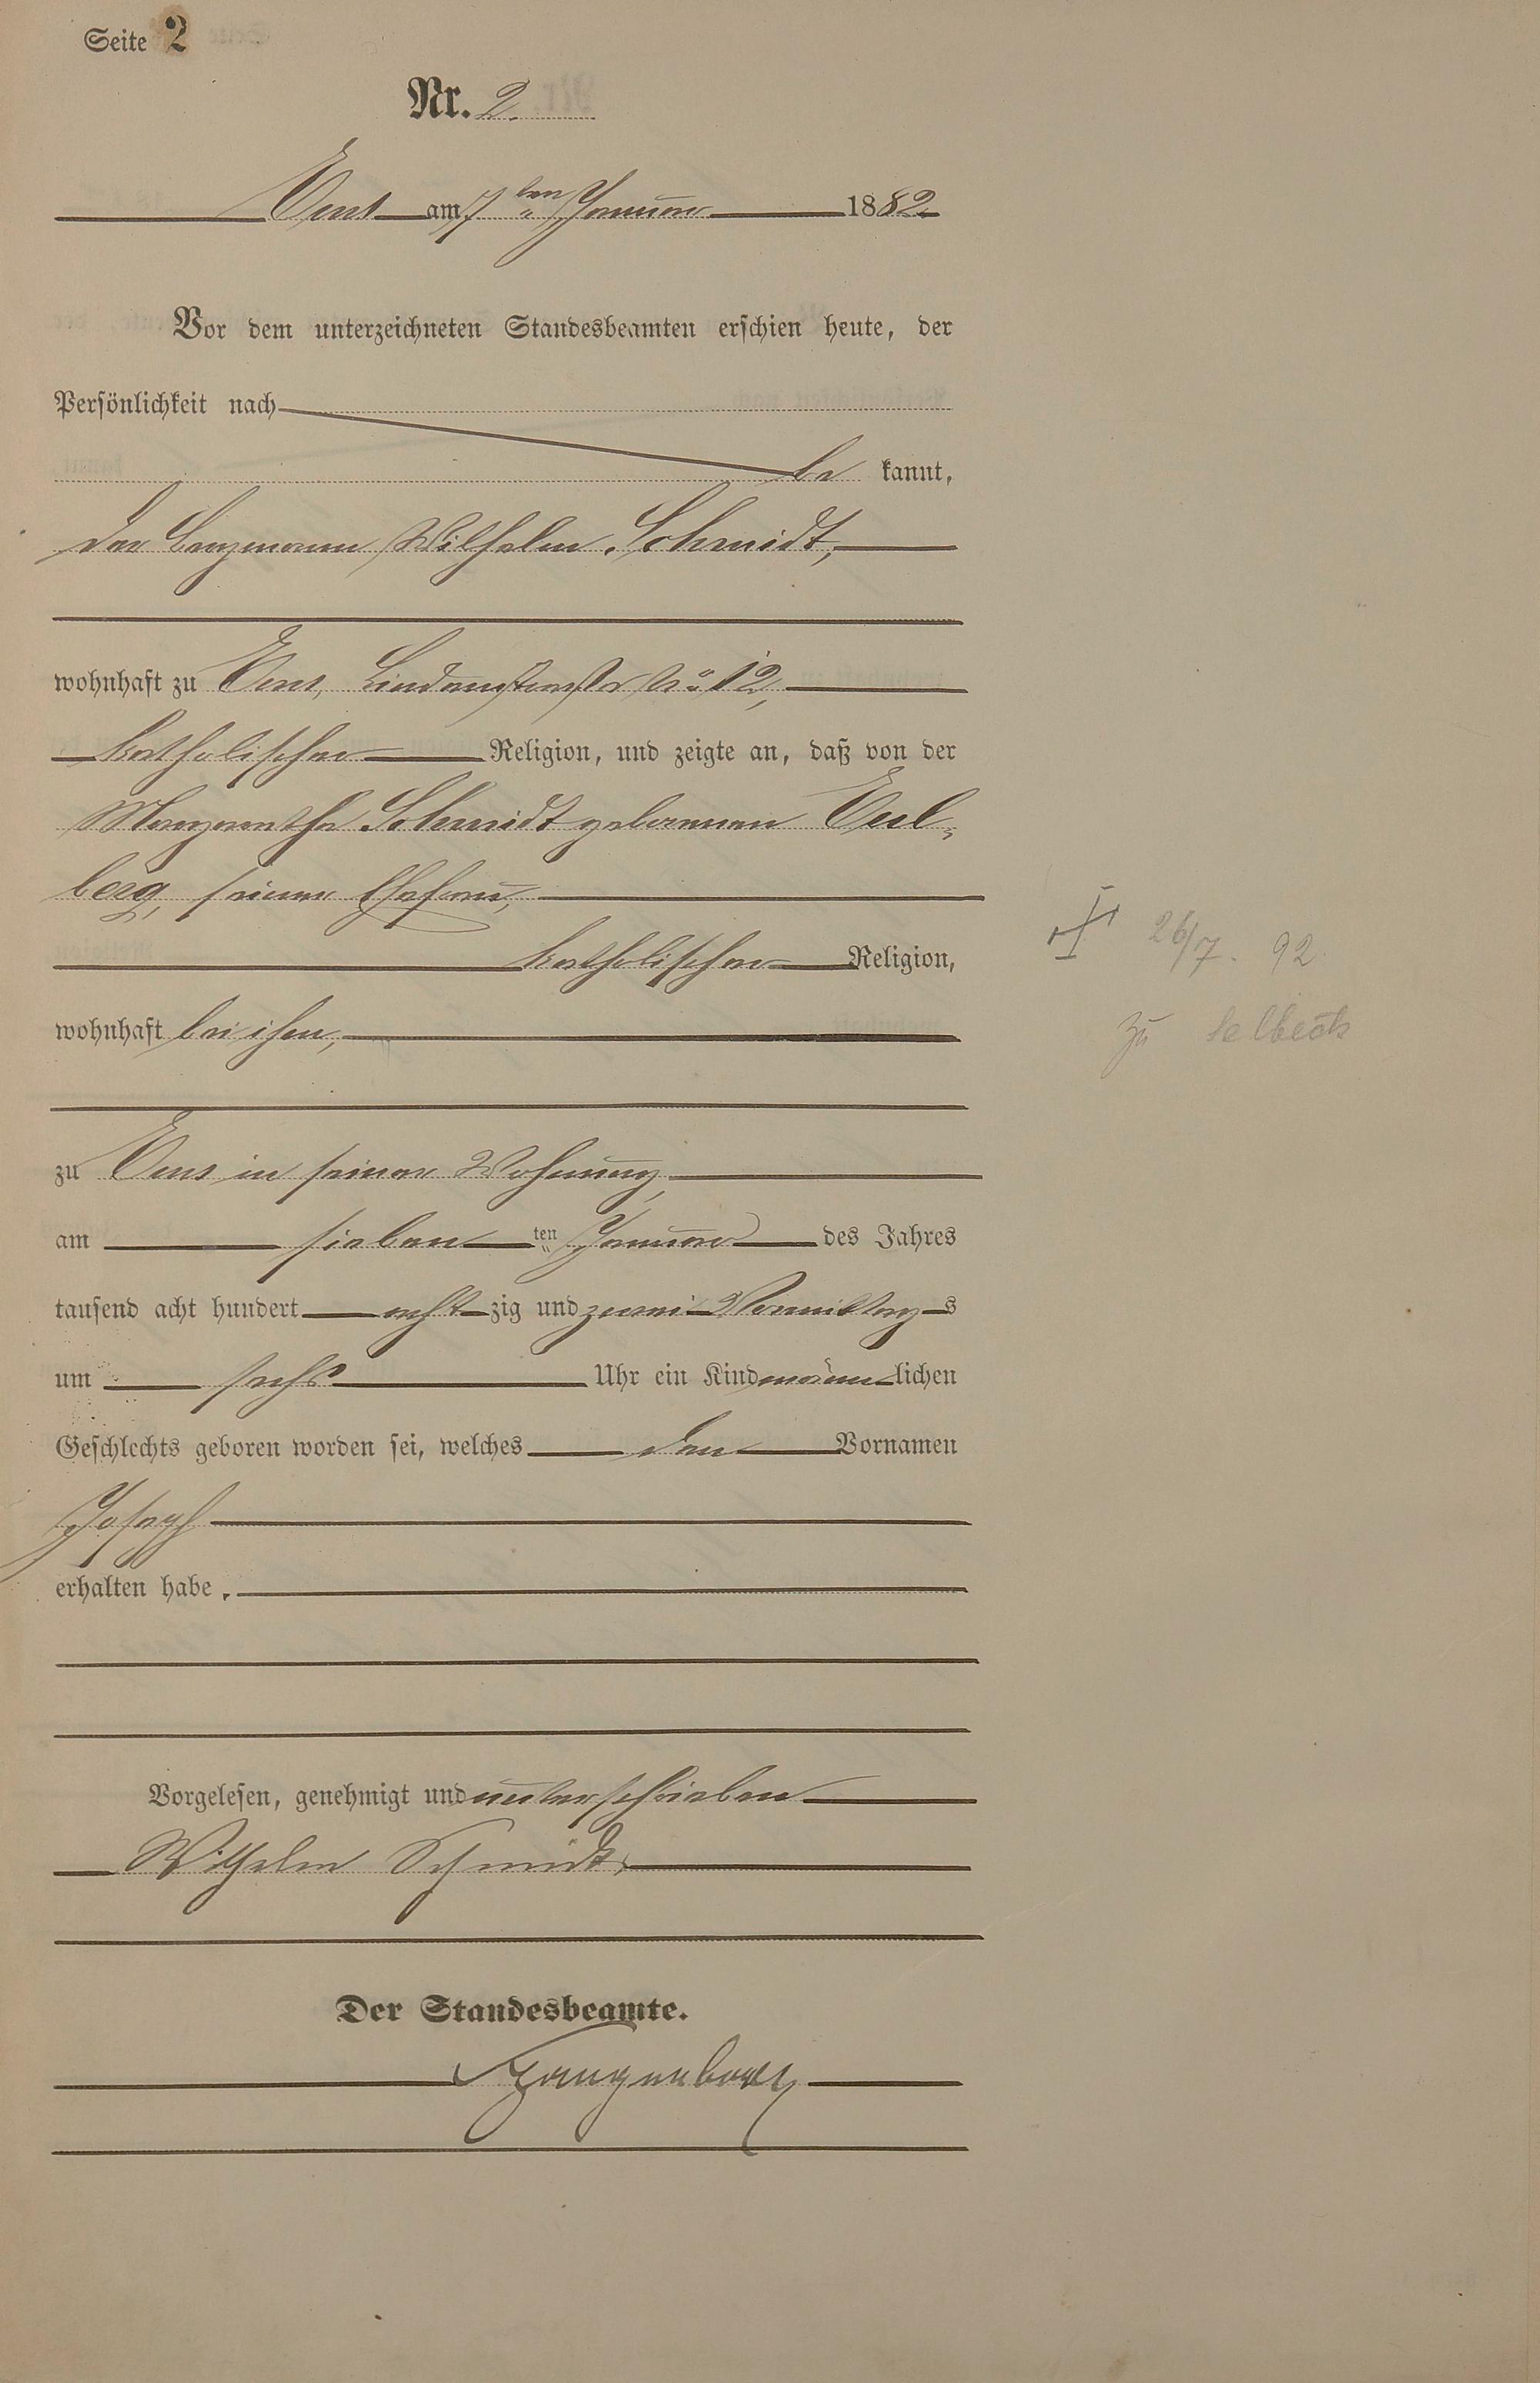 Seite 2
Nr. 2.
Ems am 7ten Januar 1882
Vor dem unterzeichneten Standesbeamten erschien heute, der
Persönlichkeit nach
be kannt,
der Bergmann Wilhelm Schmidt,
wohnhaft zu Ems, No 12,
katholischer Religion, und zeigte an, daß von der
Margaretha Schmidt geborenen Eul-
berg, seiner Ehefrau,
katholischer Religion,
wohnhaft bei ihm,
zu Ems in seiner Wohnung,
am sieben ten Januar des Jahres
tausend acht hundert acht zig und zwei Vormittag s
um sechs Uhr ein Kind männ lichen
Geschlechts geboren worden sei, welches den Vornamen
Joseph
erhalten habe.
Vorgelesen, genehmigt und unterschrieben
Wilhelm Schmidt.
Der Standesbeamte.
26/7. 92
zu Selbeck